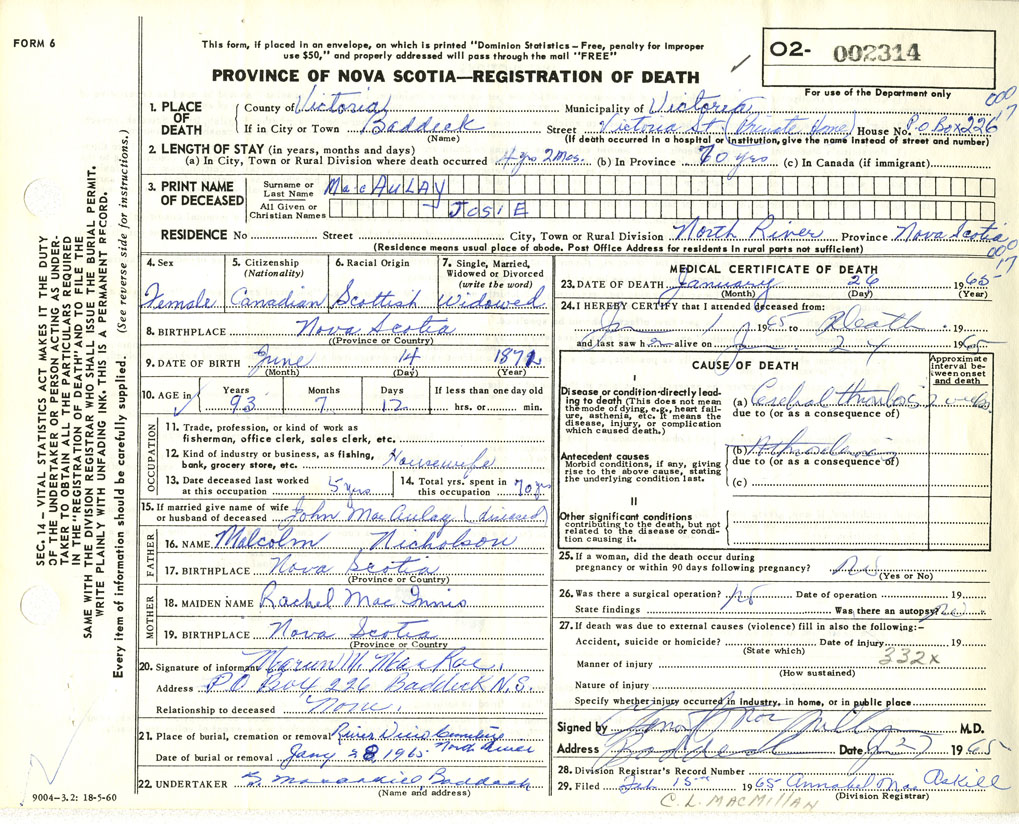 FORM 6
This form, if placed in an envelope, on which is printed "Dominion Statistics – Free, penalty for improper
use $50," and properly addressed will pass through the mail "FREE"
PROVINCE OF NOVA SCOTIA—REGISTRATION OF DEATH
O2- 002314
For use of the Department only
000
17
SEC. 14 – VITAL STATISTICS ACT MAKES IT THE DUTY
OF THE UNDERTAKER OR PERSON ACTING AS UNDER-
TAKER TO OBTAIN ALL THE PARTICULARS REQUIRED
IN THE "REGISTRATION OF DEATH" AND TO FILE THE
SAME WITH THE DIVISION REGISTRAR WHO SHALL ISSUE THE BURIAL PERMIT.
WRITE PLAINLY WITH UNFADING INK. THIS IS A PERMANENT RECORD.
Every item of information should be carefully supplied. (See reverse side for instructions.)
1. PLACE OF DEATH
County of Victoria Municipality of Victoria
If in City or Town Baddeck Street Victoria St (Private Home) House No. P.O Box 226
(Name) (If death occurred in a hospital or institution, give the name instead of street and number)
2. LENGTH OF STAY (in years, months and days)
(a) In City, Town or Rural Division where death occurred 4 yrs 2 mos. (b) In Province 70 yrs (c) In Canada (if immigrant)
3. PRINT NAME OF DECEASED
Surname or Last Name MacAULAY
All Given or Christian Names JOSIE
RESIDENCE No Street City, Town or Rural Division North River Province Nova Scotia
(Residence means usual place of abode. Post Office Address for residents in rural parts not sufficient)
000
17
4. Sex 5. Citizenship (Nationality) 6. Racial Origin 7. Single, Married, Widowed or Divorced (write the word)
Female Canadian Scottish Widowed
8. BIRTHPLACE Nova Scotia
(Province or Country)
9. DATE OF BIRTH June 14 1871
(Month) (Day) (Year)
10. AGE in Years Months Days If less than one day old
93 7 12 hrs. or min.
OCCUPATION
11. Trade, profession, or kind of work as
fisherman, office clerk, sales clerk, etc.
12. Kind of industry or business, as fishing,
bank, grocery store, etc. Housewife
13. Date deceased last worked at this occupation 5 yrs 14. Total yrs. spent in this occupation 70 yrs
15. If married give name of wife
or husband of deceased John MacAulay (diseased)
FATHER
16. NAME Malcolm Nicholson
17. BIRTHPLACE Nova Scotia
(Province or Country)
MOTHER
18. MAIDEN NAME Rachel Mac Innis
19. BIRTHPLACE Nova Scotia
(Province or Country)
20. Signature of informant M. MacRae.
Address P.O Box 226 Baddeck N.S.
Relationship to deceased None.
21. Place of burial, cremation or removal River View Cemetery
North River
Date of burial or removal Jany 28 1965
22. UNDERTAKER Baddeck
(Name and address)
9004–3.2: 18-5-60
MEDICAL CERTIFICATE OF DEATH
23. DATE OF DEATH January 26 1965
(Month) (Day) (Year)
24. I HEREBY CERTIFY that I attended deceased from:
Jan 1 1965 to Death 19
and last saw her alive on Jan 24 1965
CAUSE OF DEATH
Approximate interval between onset and death
I
Disease or condition directly lead-
ing to death (This does not mean
the mode of dying, e.g., heart fail-
ure, asthenia, etc. It means the
disease, injury, or complication
which caused death.)
(a) Cerebral thrombosis 2 weeks
due to (or as a consequence of)
Antecedent causes
Morbid conditions, if any, giving
rise to the above cause, stating
the underlying condition last.
(b)
due to (or as a consequence of)
(c)
II
Other significant conditions
contributing to the death, but not
related to the disease or condi-
tion causing it.
25. If a woman, did the death occur during
pregnancy or within 90 days following pregnancy? No
(Yes or No)
26. Was there a surgical operation? No Date of operation 19
State findings Was there an autopsy? No
27. If death was due to external causes (violence) fill in also the following:–
Accident, suicide or homicide? Date of injury 19
(State which)
332x
Manner of injury
(How sustained)
Nature of injury
Specify whether injury occurred in industry, in home, or in public place
Signed by M.D.
Address Baddeck Date Jan 27 1965
28. Division Registrar's Record Number
29. Filed Feb 15th 1965 Annabel MacAskill
(Division Registrar)
C. L. MACMILLAN